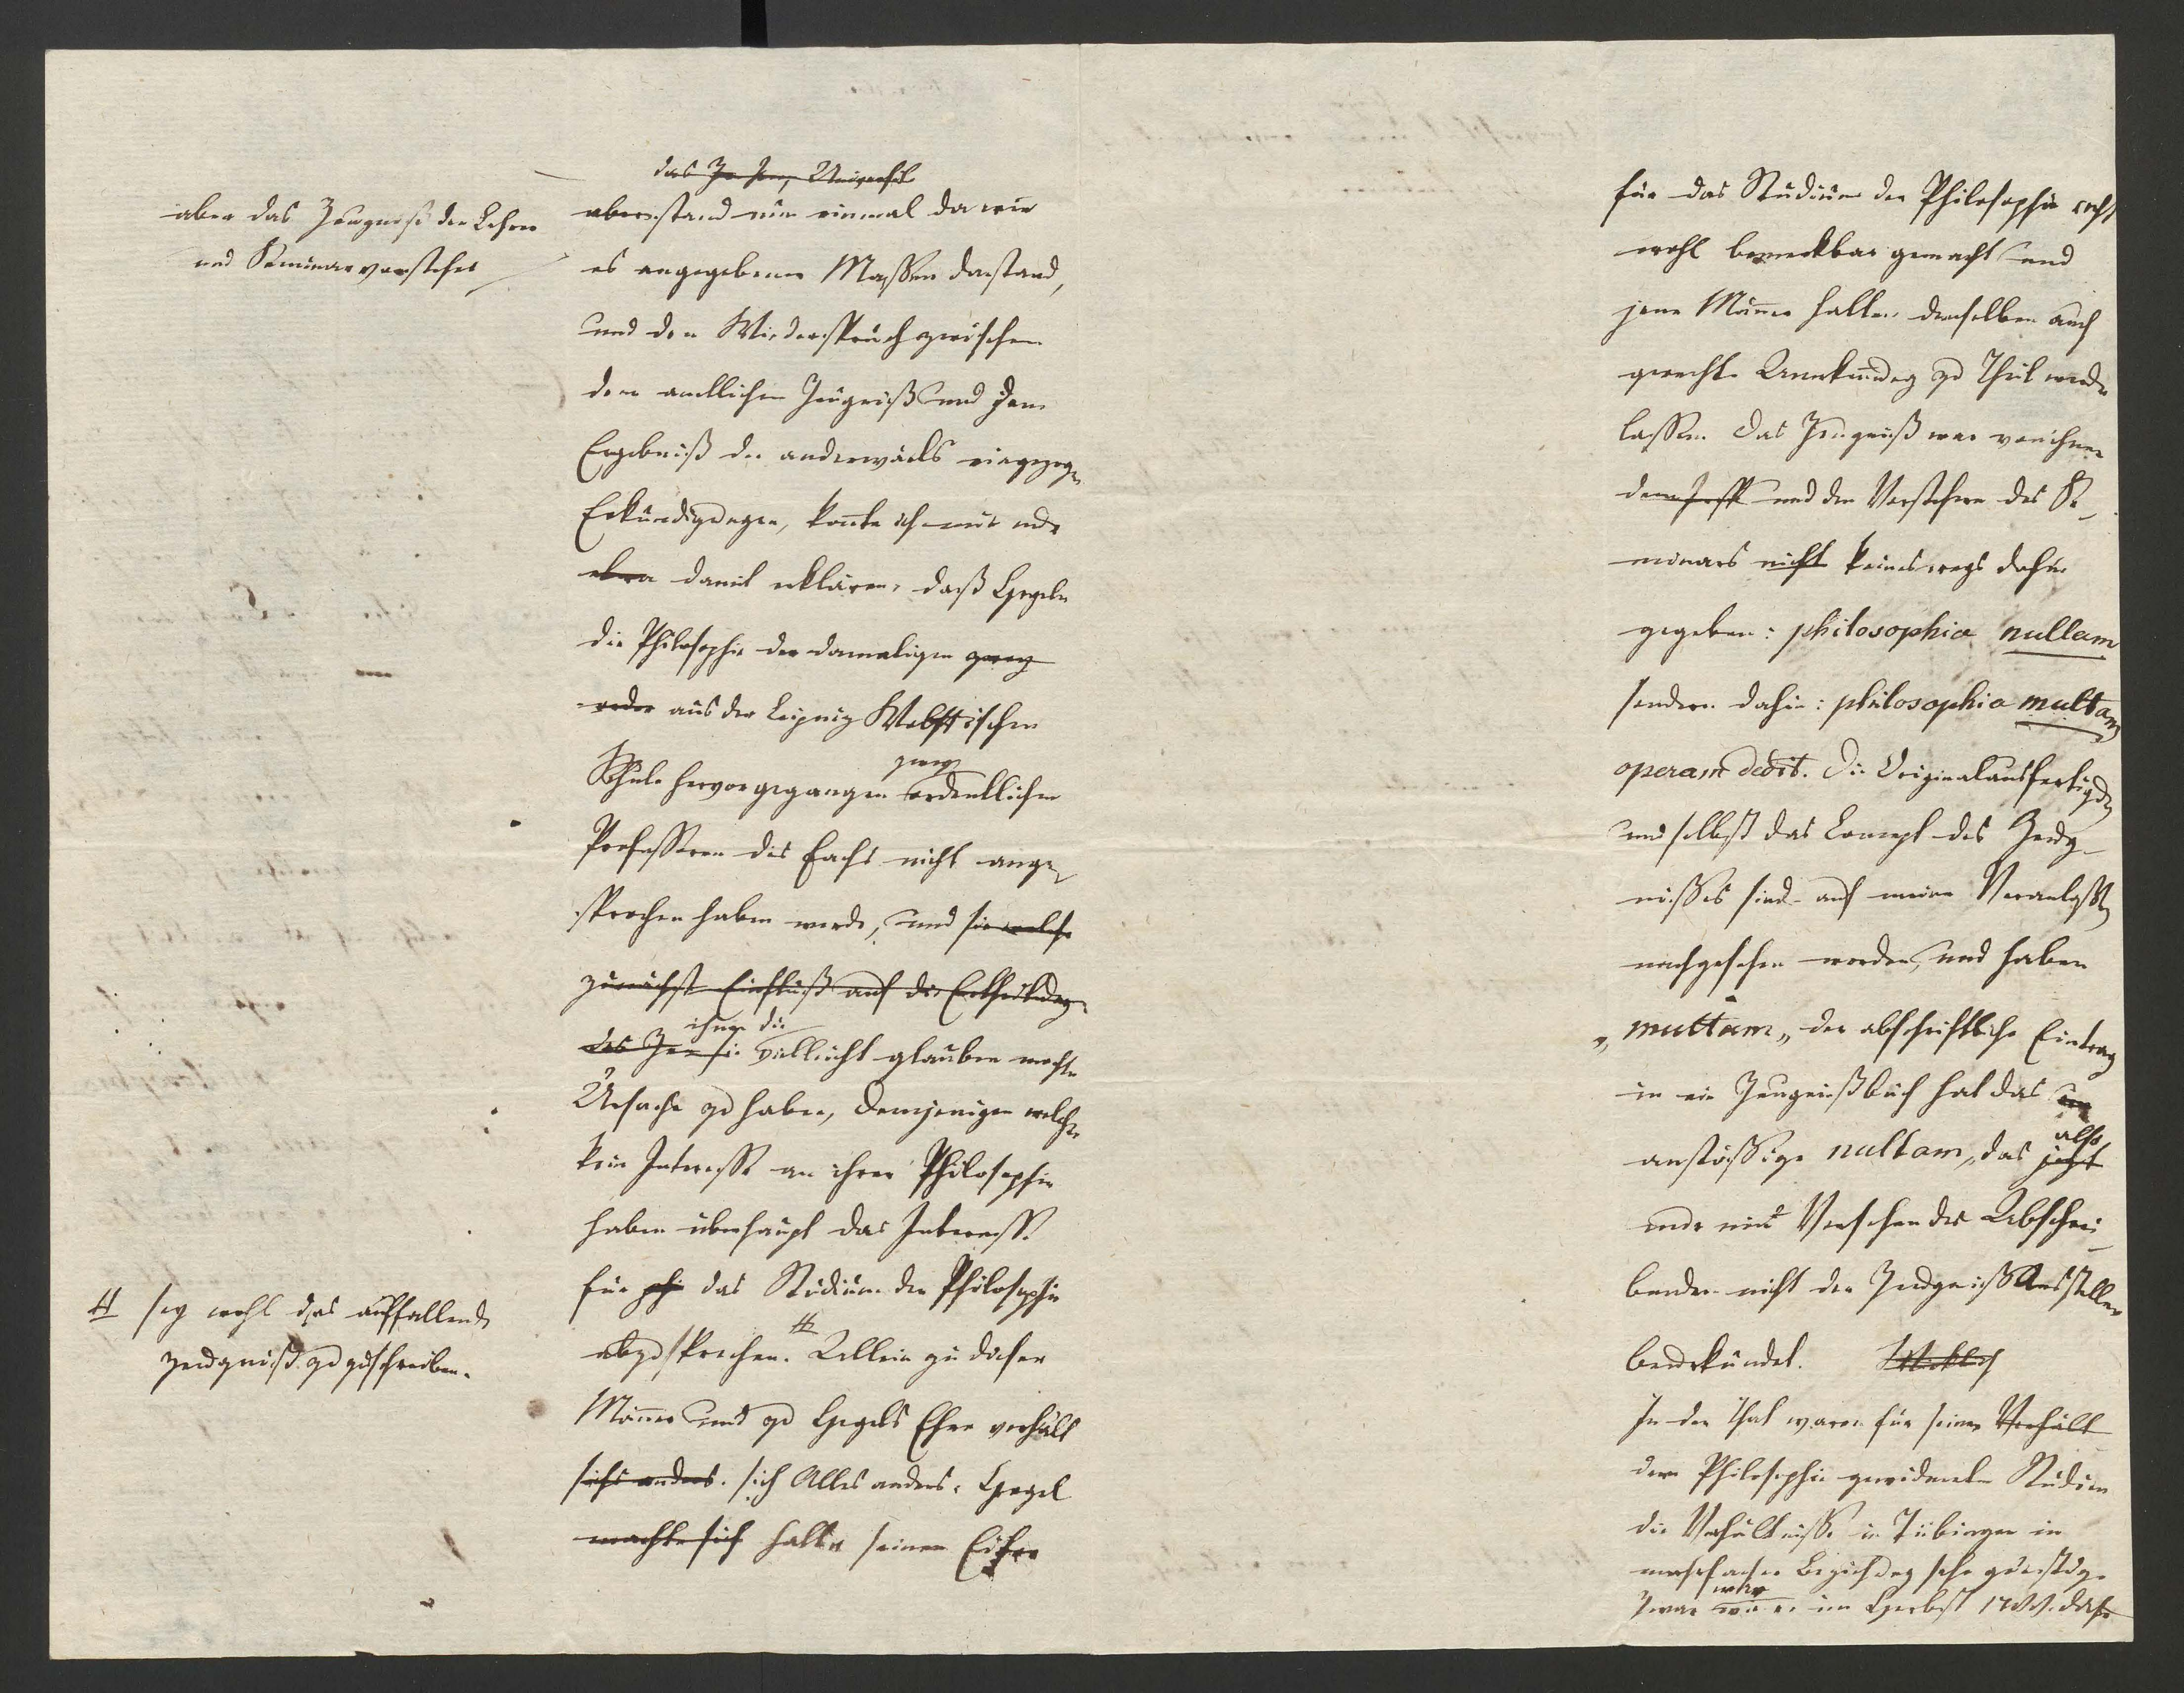 aber das Zeugniß der Lehrer
und Seminarvorsteher
# sey wohl das auffallende
Zeugniß zuzuschreiben.
das
aber stand nun einmal da wie
es angegebener Massen dastand,
und den Widerspruch zwischen
dem amtlichen Zeugniß und dem
Ergebniß der anderwärts eingezogen
Erkundigungen, konnte ich mir nur
etwa damit erklären, daß Hegeln
die Philosophie der damaligen ganz
oder aus der Leipniz Wolffischen
zwey
Schule hervorgegangen ordentlichen
Professoren des Fachs nicht ange
sprochen haben werde, und sie welche
zunächst Einfluß auf die Ertheilung
ihnen die
des Zeu sie vielleicht glauben mochte
Ursache zu haben, demjenigen welcher
kein Interesse an ihrer Philosophie
haben überhaupt das Interesse
für phi das Studium der Philosophie
#
abzusprechen. Allein zu dieser
Männer und zu Hegels Ehre verhält
sichs anders. sich Alles anders. Hegel
machte sich hatte seinen Eifer
für das Studium der Philosophie recht
wohl bemerkbar gemacht und
jene Männer hatten demselben auch
gerechte Anerkennung zu Theil werden
lassen. Das Zeugniß war von ihnen
und den Vorstehern des Se
minars nicht keineswegs dahin
gegeben: philosophiae nullam
sondern dahin: philosophiae multam
operam dedit. Die Originalausfertigung
und selbst das Concept des Zeug-
nisses sind auf meine Veranlassung
nachgesehen worden, und haben
„multam„ der abschriftliche Eintrag
in ein Zeugnißbuch hat das
also
anstössige nullam, das jetzt
nur ein Versehen des Abschrei
benden nicht der Zeugniß Aussteller
beurkundet. Wirklich
In der That waren für seine Verhält
dem Philosophie gewidmeten Studien
die Verhältnisse in Tübingen in
mehrfacher Beziehung sehr günstig.
Zwar wie er im Herbst 1788. dahin